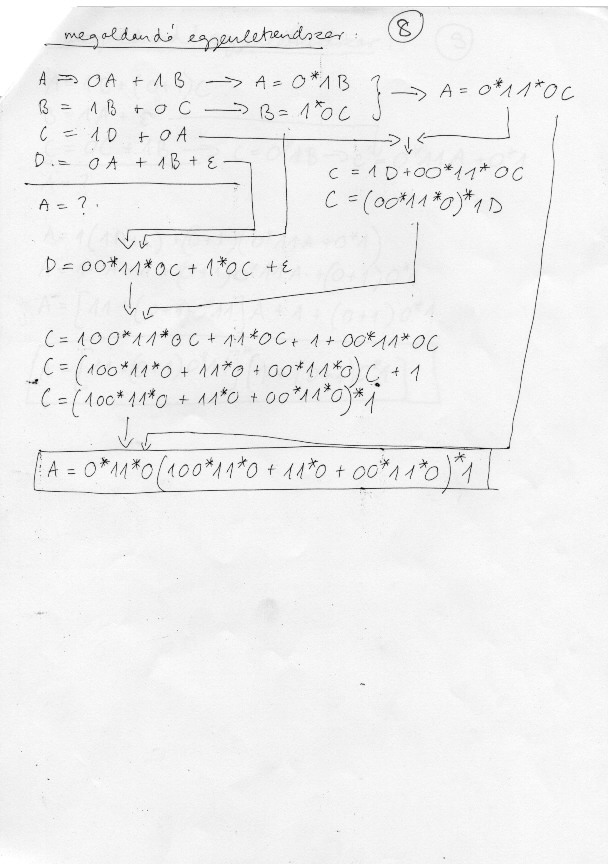 megoldandó egyenletrendszer: 8
A = 0A + 1B → A = 0*1B
B = 1B + 0C → B = 1*0C } → A = 0*11*0C
C = 1D + 0A
D = 0A + 1B + ε
C = 1D + 00*11*0C
A = ?
C = (00*11*0)*1D
D = 00*11*0C + 1*0C + ε
C = 100*11*0C + 11*0C + 1 + 00*11*0C
C = (100*11*0 + 11*0 + 00*11*0)C + 1
C = (100*11*0 + 11*0 + 00*11*0)*1
A = 0*11*0(100*11*0 + 11*0 + 00*11*0)*1